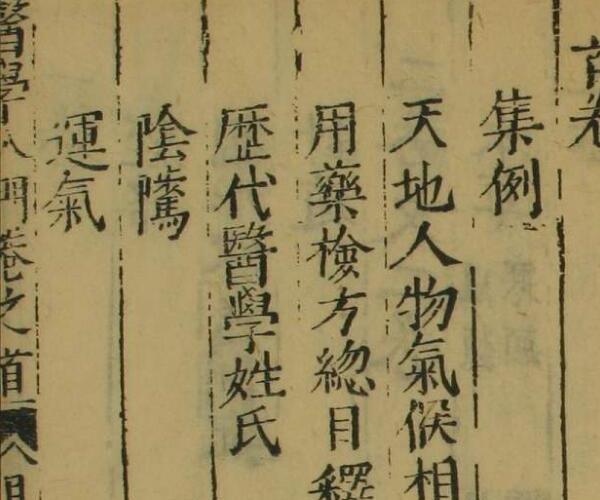 首卷
集例
天地人物氣候相
用藥檢方總目釋
歷代醫學姓氏
陰隲
運氣
醫學入門卷之首